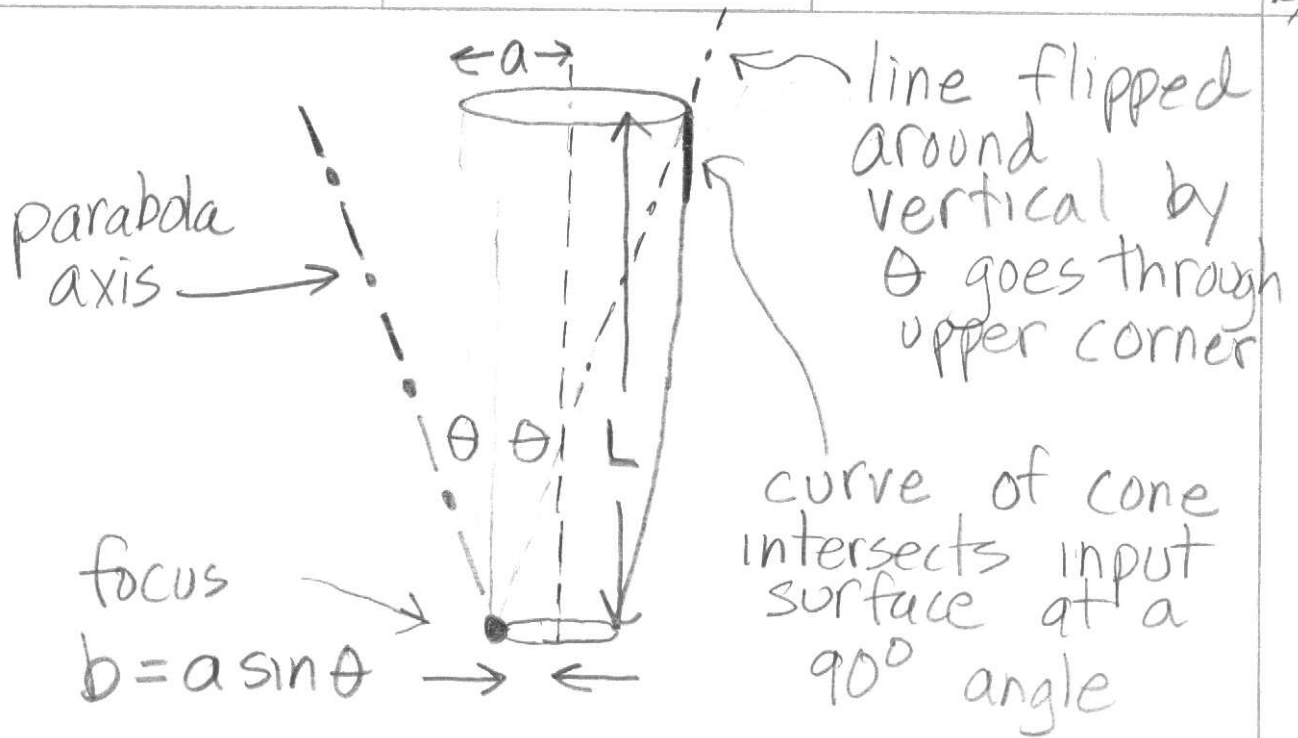 a
line flipped
around
vertical by
θ goes through
upper corner
parabola
axis
θ θ L
focus
b = a sin θ
curve of cone
intersects input
surface at a
90° angle